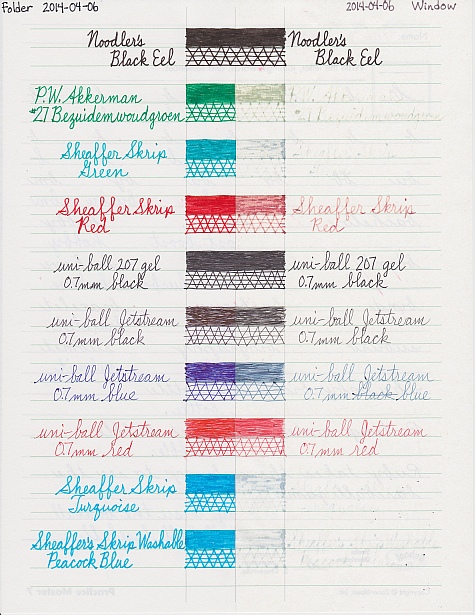 Folder 2014-04-06
2014-04-06 Window
Noodler's Noodler's
Black Eel Black Eel
P.W. Akkerman P.W. Akk
#27 Bezuidenwoudgroen
Sheaffer Skrip
Green
Sheaffer Skrip Sheaffer Skrip
Red Red
uni-ball 207 gel uni-ball 207 gel
0.7mm black 0.7mm black
uni-ball Jetstream uni-ball Jetstream
0.7mm black 0.7mm black
uni-ball Jetstream uni-ball Jetstream
0.7mm blue 0.7mm black blue
uni-ball Jetstream uni-ball Jetstream
0.7mm red 0.7mm red
Sheaffer Skrip
Turquoise
Sheaffer's Skrip Washable
Peacock Blue